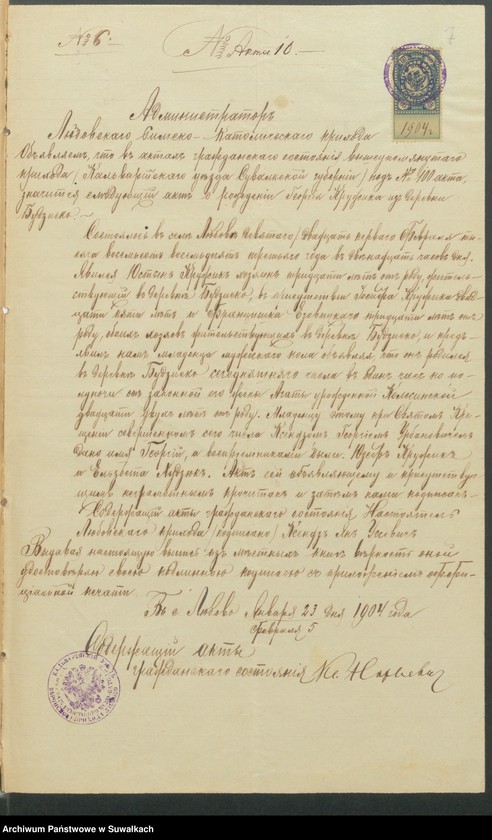 № 6.
№ Акта 10.
7
1904 г.
Администраторъ
Любовскаго Римско-Католическаго прихода
Объявляетъ, что въ актахъ гражданскаго состоянія вышеупомянутаго
прихода (Кальварійскаго уѣзда Сувалкской губерніи) подъ №
значится слѣдующій актъ о рожденіи Георгія Крупика изъ деревни
Будзиско.
Состоялось въ селѣ Любовѣ девятаго/двадцать перваго Февраля ты-
сяча восемьсотъ восемьдесятъ третьяго года въ двѣнадцать часовъ дня.
Явился Юстинъ Крупикъ тридцати лѣтъ отъ роду, житель-
ствующій въ деревнѣ Будзиско, въ присутствіи Крупика двад-
цати лѣтъ и Францишка тридцати лѣтъ отъ
роду, обоихъ жительствующихъ въ деревнѣ Будзиско, и предъ-
явилъ намъ младенца мужескаго пола объявляя, что онъ родился
въ деревнѣ Будзиско сегодняшняго числа въ часъ по по-
луночи отъ законной его жены Агаты урожденной
двадцати двухъ лѣтъ отъ роду. Младенцу этому при Святомъ Кре-
щеніи совершенномъ сего числа Ксендзомъ Георгіемъ Урбановичемъ
дано имя Георгій, а воспріемниками были Крупикъ
и Ельзбета. Актъ сей объявляющему и присутствую-
щимъ неграмотнымъ прочитанъ и затѣмъ нами подписанъ.
Содержащій акты гражданскаго состоянія Настоятель
Любовскаго прихода (подписано) Ксендзъ
Выдавая настоящую выпись изъ мѣстныхъ книгъ вѣрность оной
удостовѣряю своею подписью съ приложеніемъ оффи-
ціальной печати.
Въ с. Любово Января 23 дня 1904 года
Февраля 5
Содержащій акты
гражданскаго состоянія Кс.
Archiwum Państwowe w Suwałkach